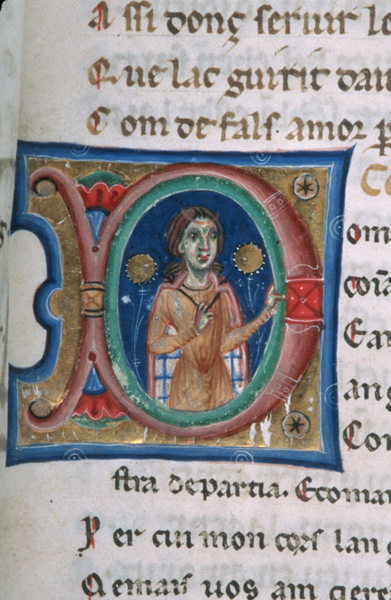 A ssi donç seruir le
Que lac guirit dau
Com de fals amor
om
çora
E a
anc
Con
stra departia. E coma
Per cui mon cors lan
Qemais uos am